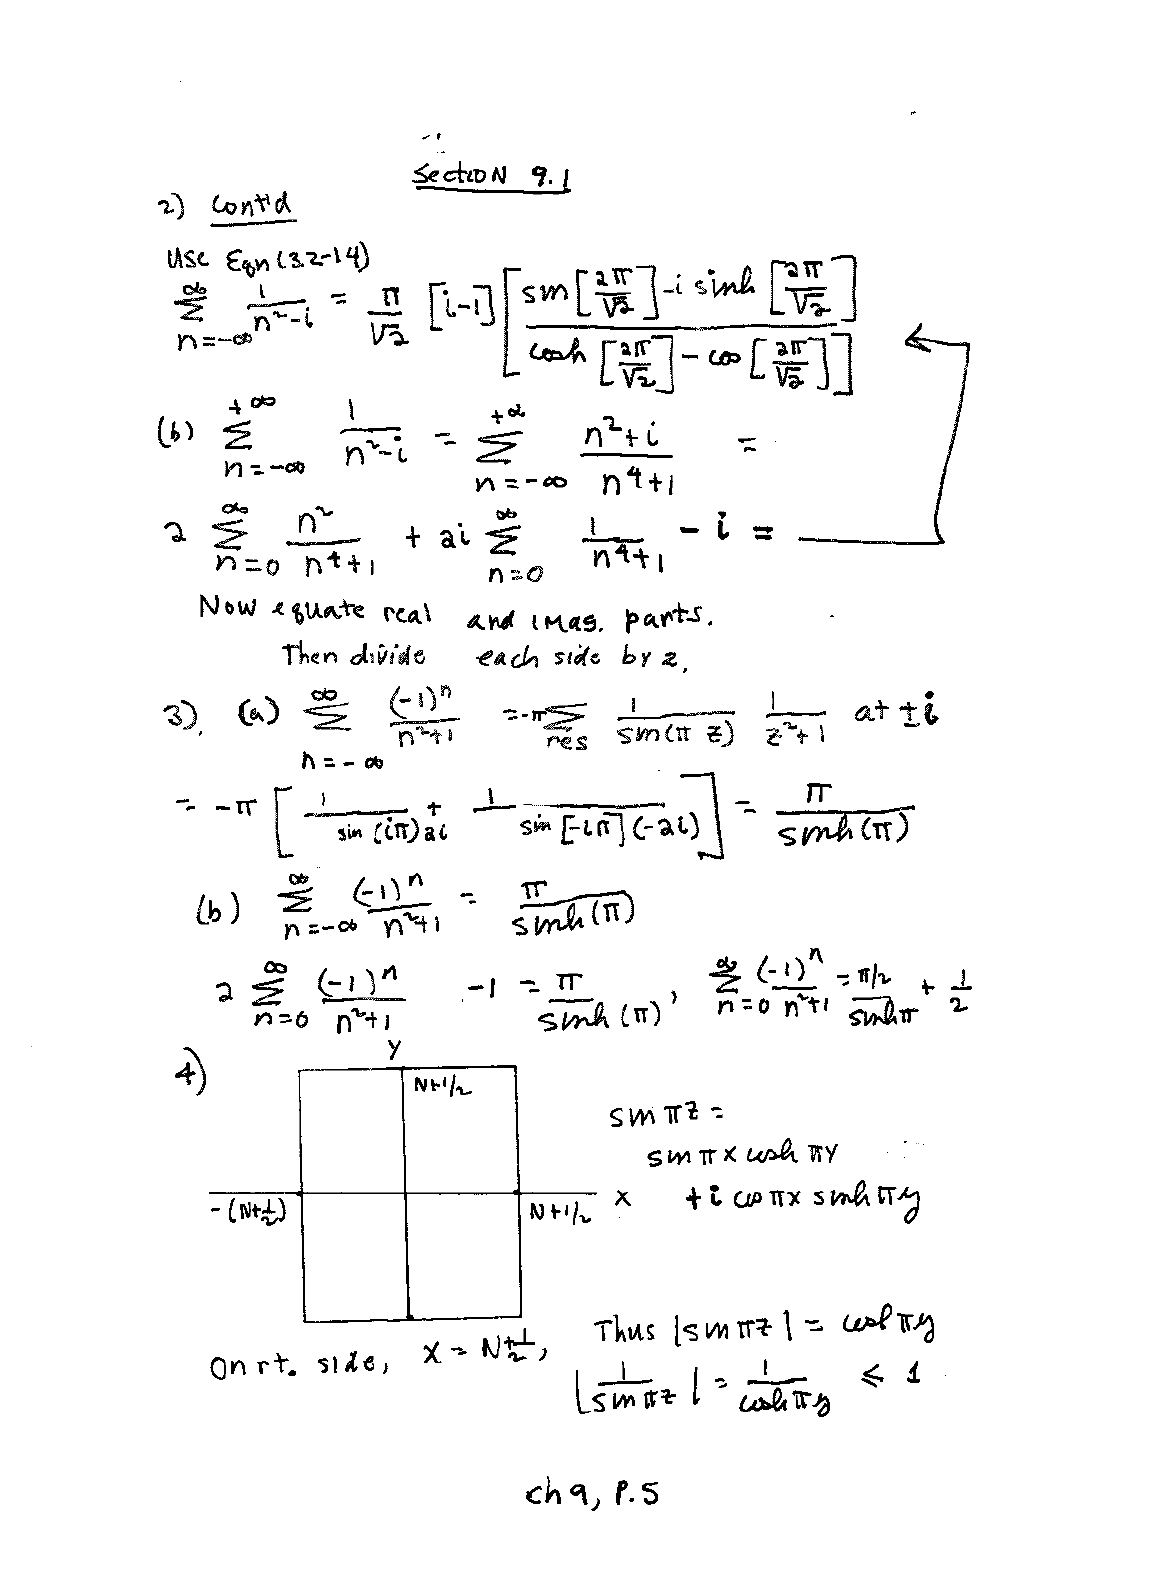 Section 9.1
2) Cont'd
Use Eqn (3.2-14)
∑_{n=-∞}^{∞} 1/(n²-i) = π/√2 [i-1] [ (sin[2π/√2] - i sinh[2π/√2]) / (cosh[2π/√2] - cos[2π/√2]) ]
(b) ∑_{n=-∞}^{+∞} 1/(n²-i) = ∑_{n=-∞}^{+∞} (n²+i)/(n⁴+1) =
2 ∑_{n=0}^{∞} n²/(n⁴+1) + 2i ∑_{n=0}^{∞} 1/(n⁴+1) - i =
Now equate real and imag. parts.
Then divide each side by 2,
3). (a) ∑_{n=-∞}^{∞} (-1)ⁿ/(n²+1) = -π ∑_{res} 1/sin(π z) 1/(z²+1) at ±i
= -π [ 1/(sin(iπ)2i) + 1/(sin[-iπ](-2i)) ] = π/sinh(π)
(b) ∑_{n=-∞}^{∞} (-1)ⁿ/(n²+1) = π/sinh(π)
2 ∑_{n=0}^{∞} (-1)ⁿ/(n²+1) - 1 = π/sinh(π), ∑_{n=0}^{∞} (-1)ⁿ/(n²+1) = (π/2)/sinhπ + 1/2
4)
y
N+1/2
sin πz =
sin πx cosh πy
-(N+1/2)
N+1/2
x
+i cos πx sinh πy
On rt. side, x = N+1/2, Thus |sin πz| = cosh πy
|1/sin πz| = 1/cosh πy ≤ 1
ch 9, P.5